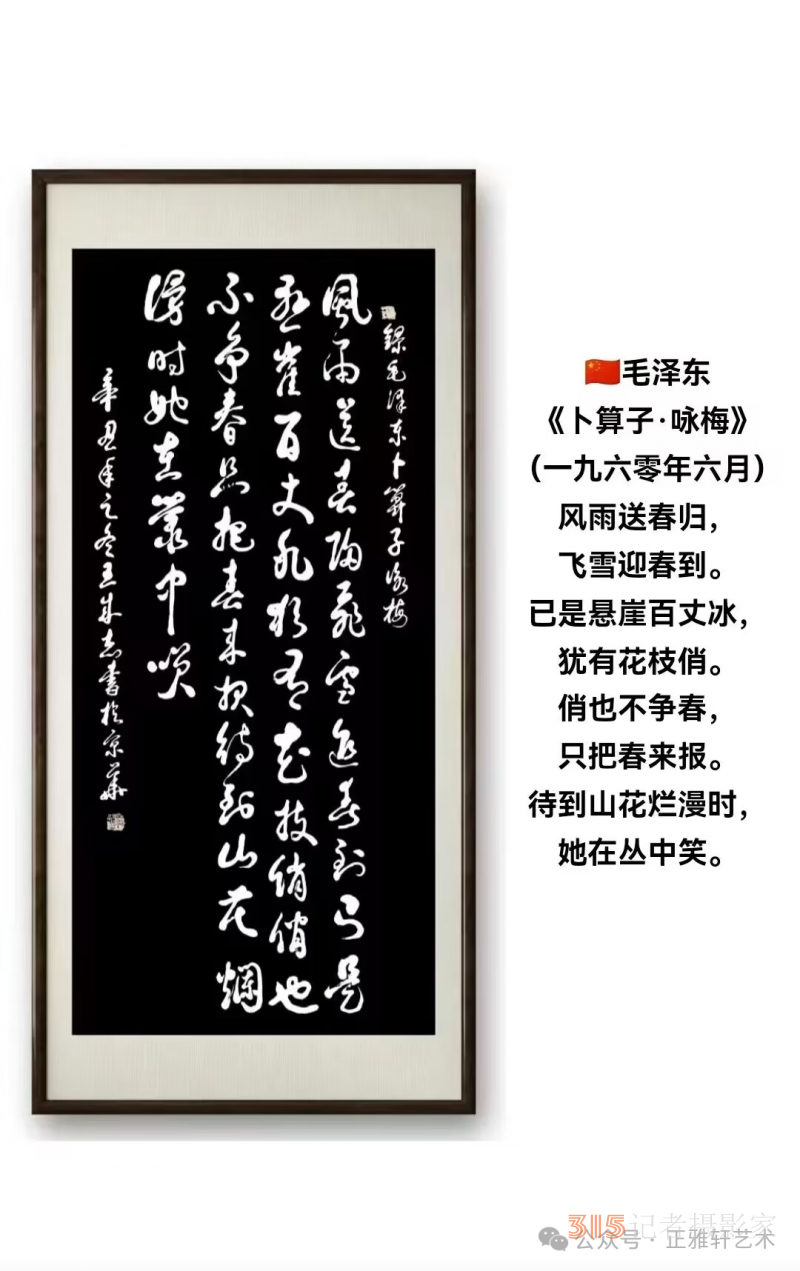 錄毛泽东卜算子詠梅
風雨送春归飛雪迎春到已是
悬崖百丈冰犹有花枝俏俏也
不争春只把春来报待到山花爛
漫时她在叢中咲
辛丑年之冬王志書於京華
🇨🇳毛泽东
《卜算子·咏梅》
（一九六零年六月）
风雨送春归，
飞雪迎春到。
已是悬崖百丈冰，
犹有花枝俏。
俏也不争春，
只把春来报。
待到山花烂漫时，
她在丛中笑。
315记者摄影家
公众号·正雅轩艺术